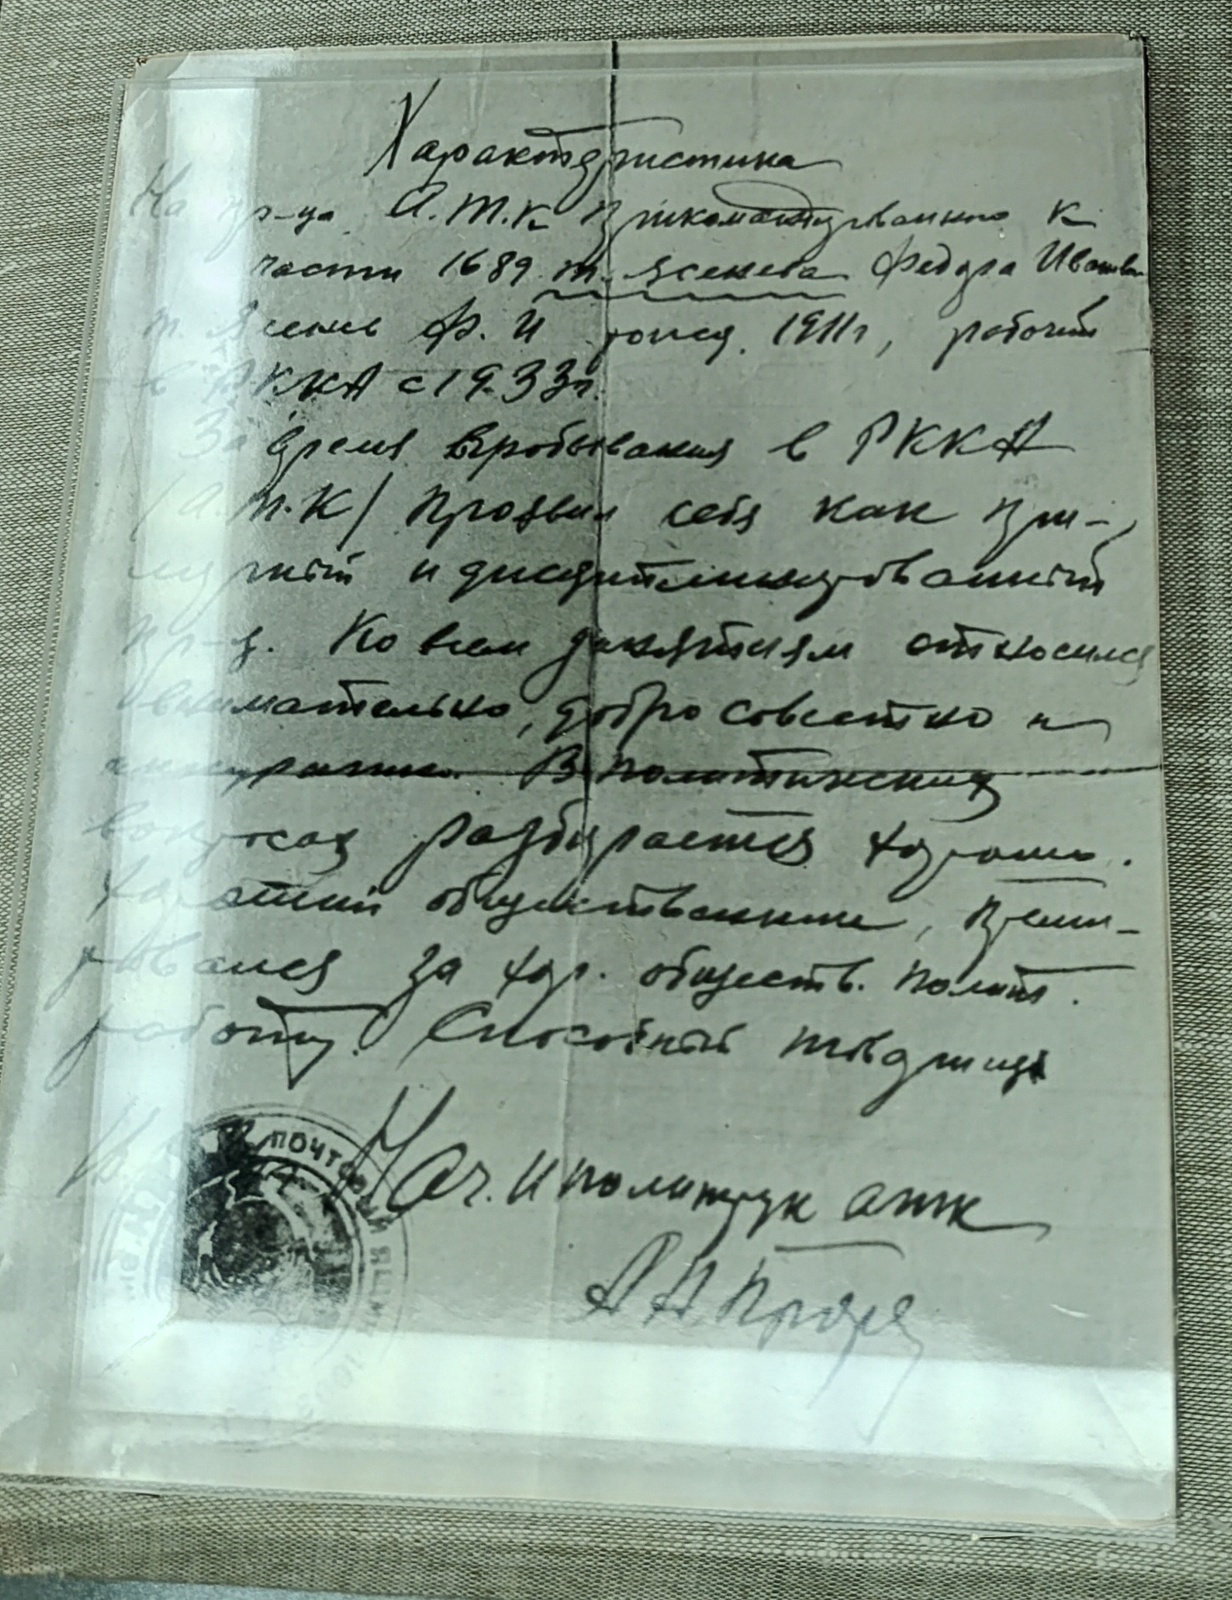 Характеристика
На кр-ца А.Т.К прикомандированно к
части 1689 т. Ясенева Федора Иванов
т. Ясенев Ф. И рожд. 1911г, рабочий
в РККА с 1933г.
За время пребывания в РККА
(А.Т.К) проявил себя как при-
мерный и дисциплинированный
кр-ц. Ко всем занятиям относился
внимательно, добросовестно и
аккуратно. В политических
вопросах разбирается хорошо.
Хороший общественник, преми-
ровался за хор. обществ. полит.
работу. Способный товарищ
Нач. и политрук атк
ПОЧТОВЫЙ ЯЩИК